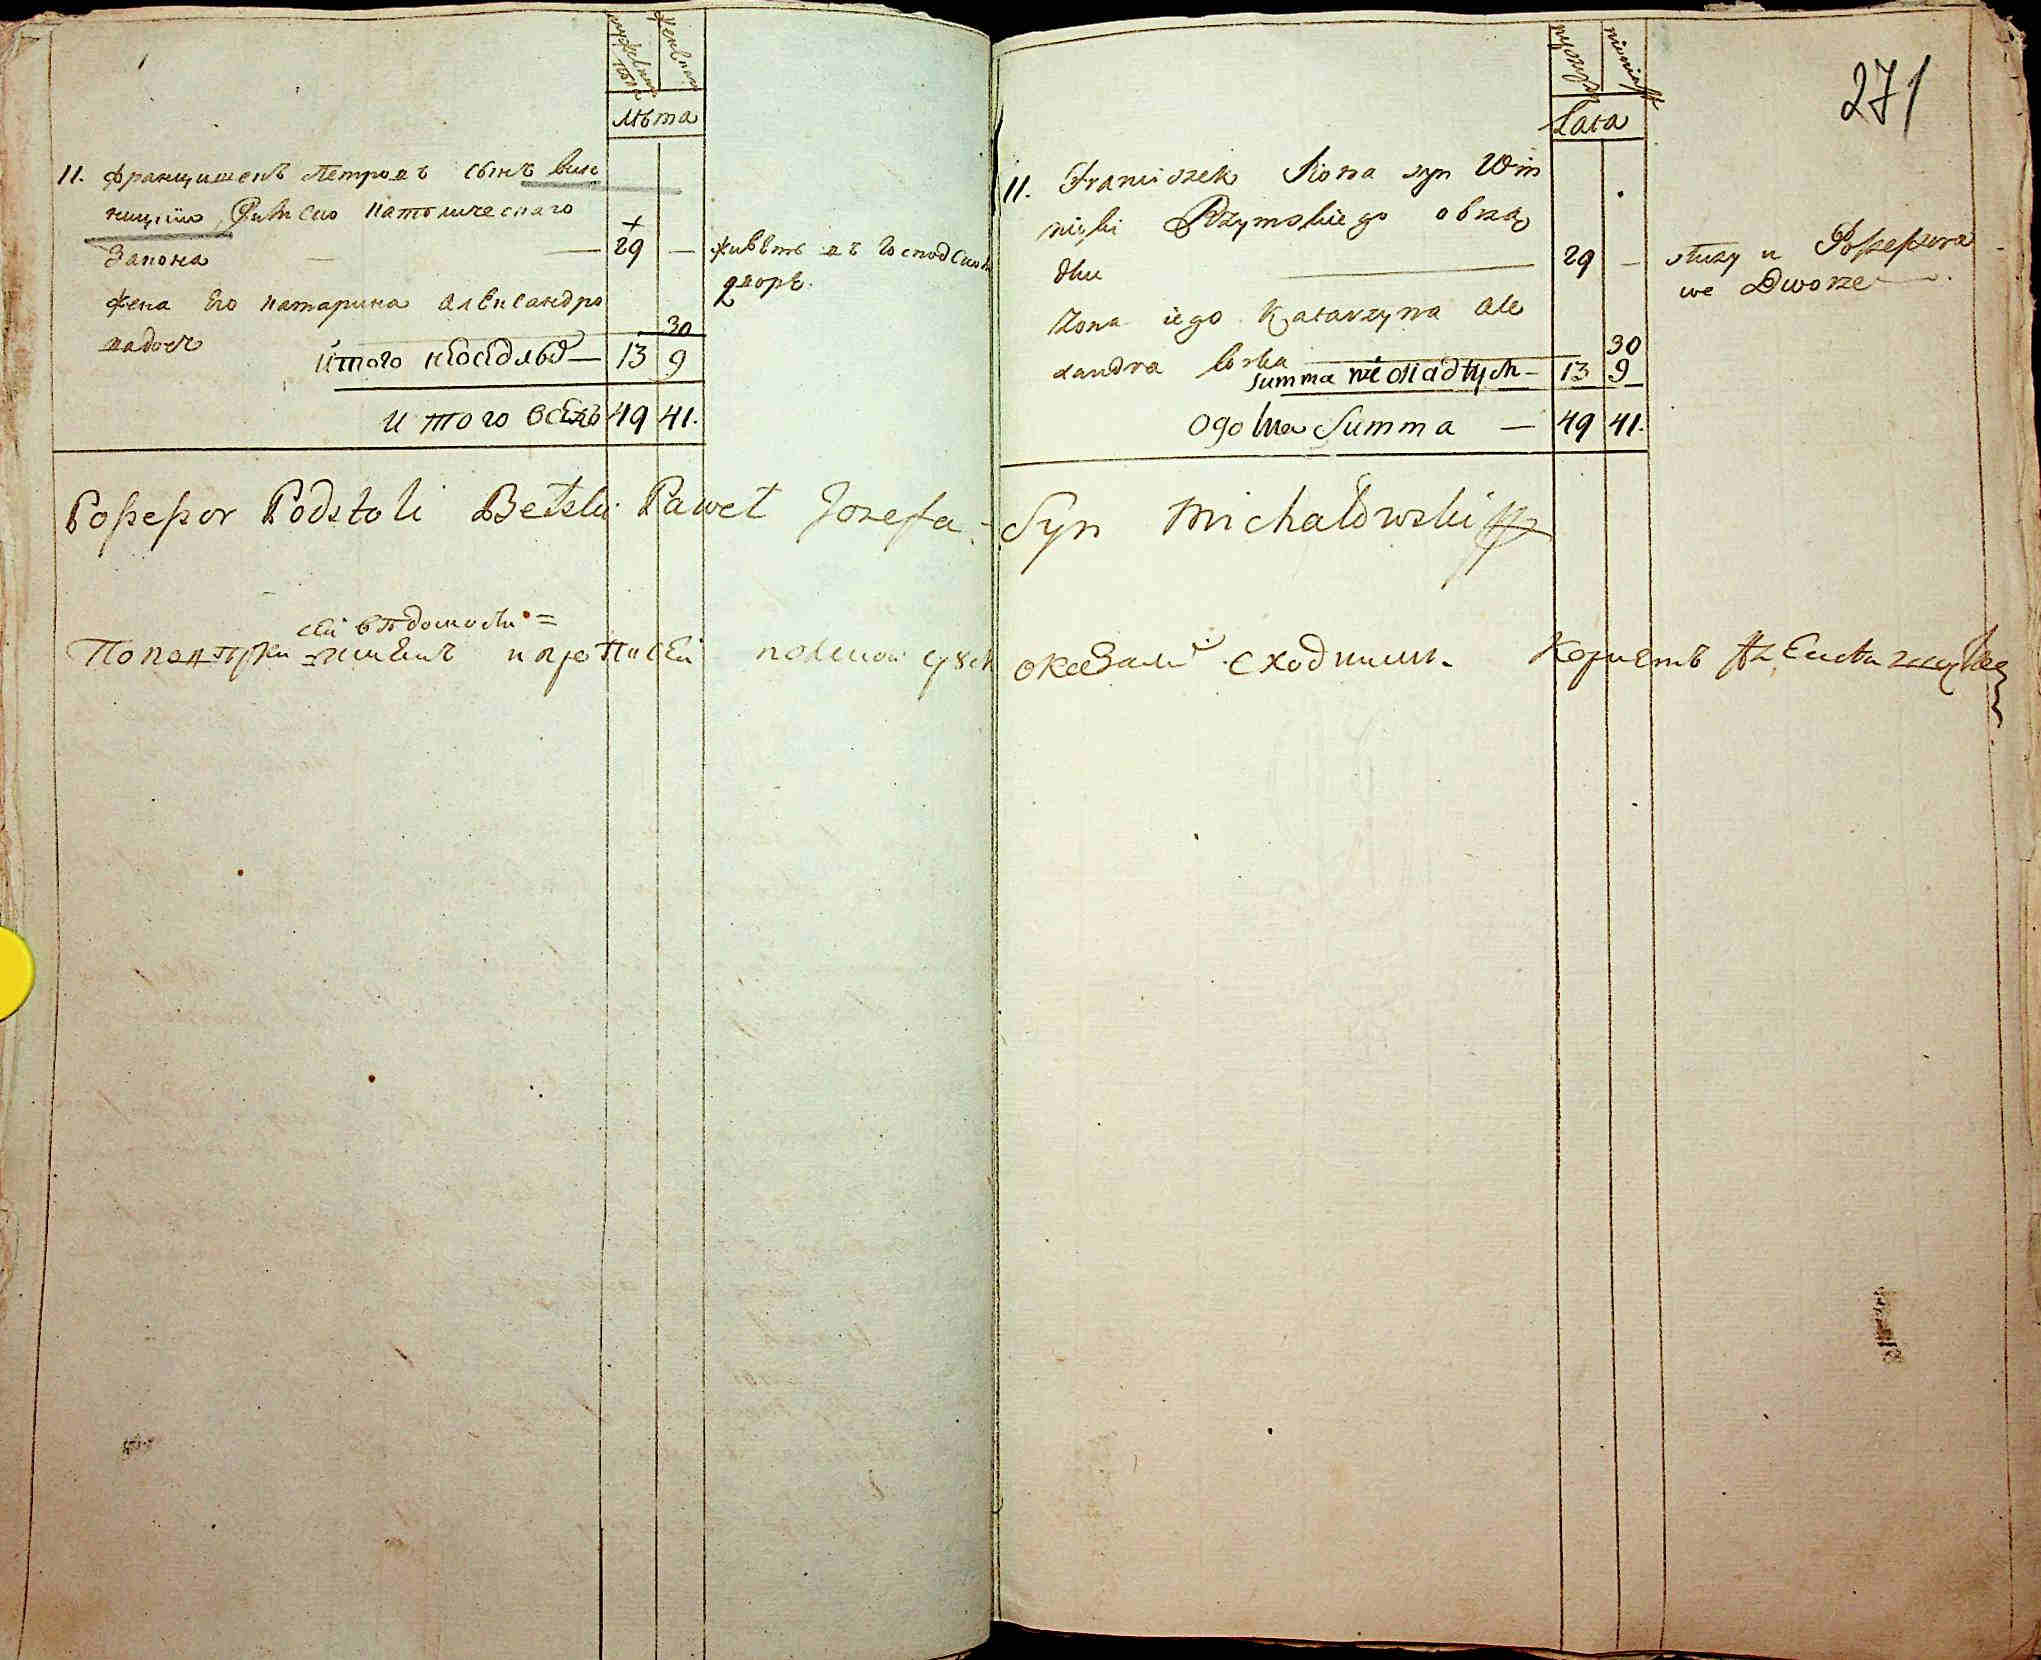 мужескъ
полъ
женскъ
Лѣта
11. Францишекъ Петровъ сынъ Вин
ницкiй Римско Католическаго
Закона — — 29 — живетъ въ Господскомъ
дворѣ.
Жена Его Катарина Александро
вадочь 30
Итого неоседлых — 13 9
Итого всехъ 49 41.
271
męzczyzn
niewiast
Lata
11. Franciszek Piotra syn Win
nicki Rzymskiego obrzą
dku 29 — służy u Possessora
we Dworze
Żona iego Katarzyna Ale
xandra Corka 30
Summa nieosiadłych — 13 9
Ogolna Summa — 49 41.
Possessor Podstoli Bełski Paweł Jozefa Syn Michałowski
сей вѣдомости =
По повѣрки оказались сходными. Корнетъ